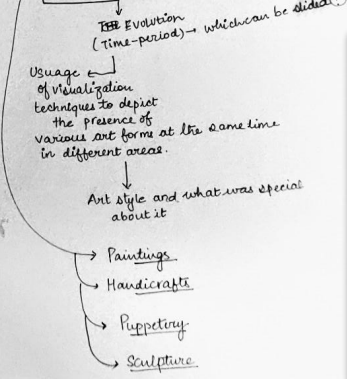 The Evolution
(Time-period) → which can be slided
Usuage
of visualization
techniques to depict
the presence of
various art forms at the same time
in different areas.
Art style and what was special
about it
Paintings
Handicrafts
Puppetry
Sculpture